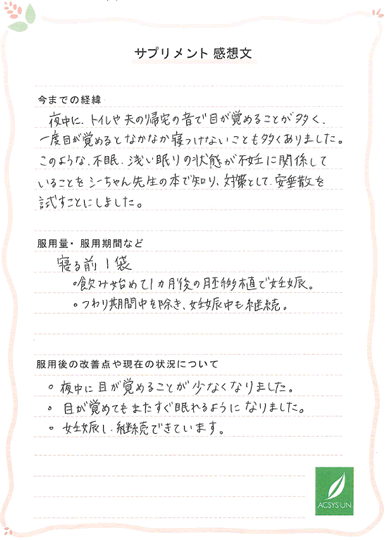 サプリメント 感想文
今までの経緯
夜中に、トイレや夫の帰宅の音で目が覚めることが多く、
一度目が覚めるとなかなか寝つけないことも多くありました。
このような、不眠、浅い眠りの状態が不妊に関係して
いることをシーちゃん先生の本で知り、対策として、安垂散を
試すことにしました。
服用量・服用期間など
寝る前1袋
○飲み始めて1ヵ月後の胚移植で妊娠。
○つわり期間中を除き、妊娠中も継続。
服用後の改善点や現在の状況について
○ 夜中に目が覚めることが少なくなりました。
○ 目が覚めてもまたすぐ眠れるようになりました。
○ 妊娠し、継続できています。
ACSYS'UN